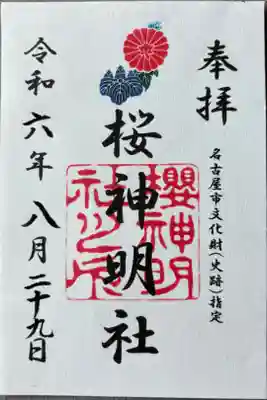 奉拝
名古屋市文化財(史跡)指定
桜神明社
櫻神明
社之印
令和六年八月二十九日